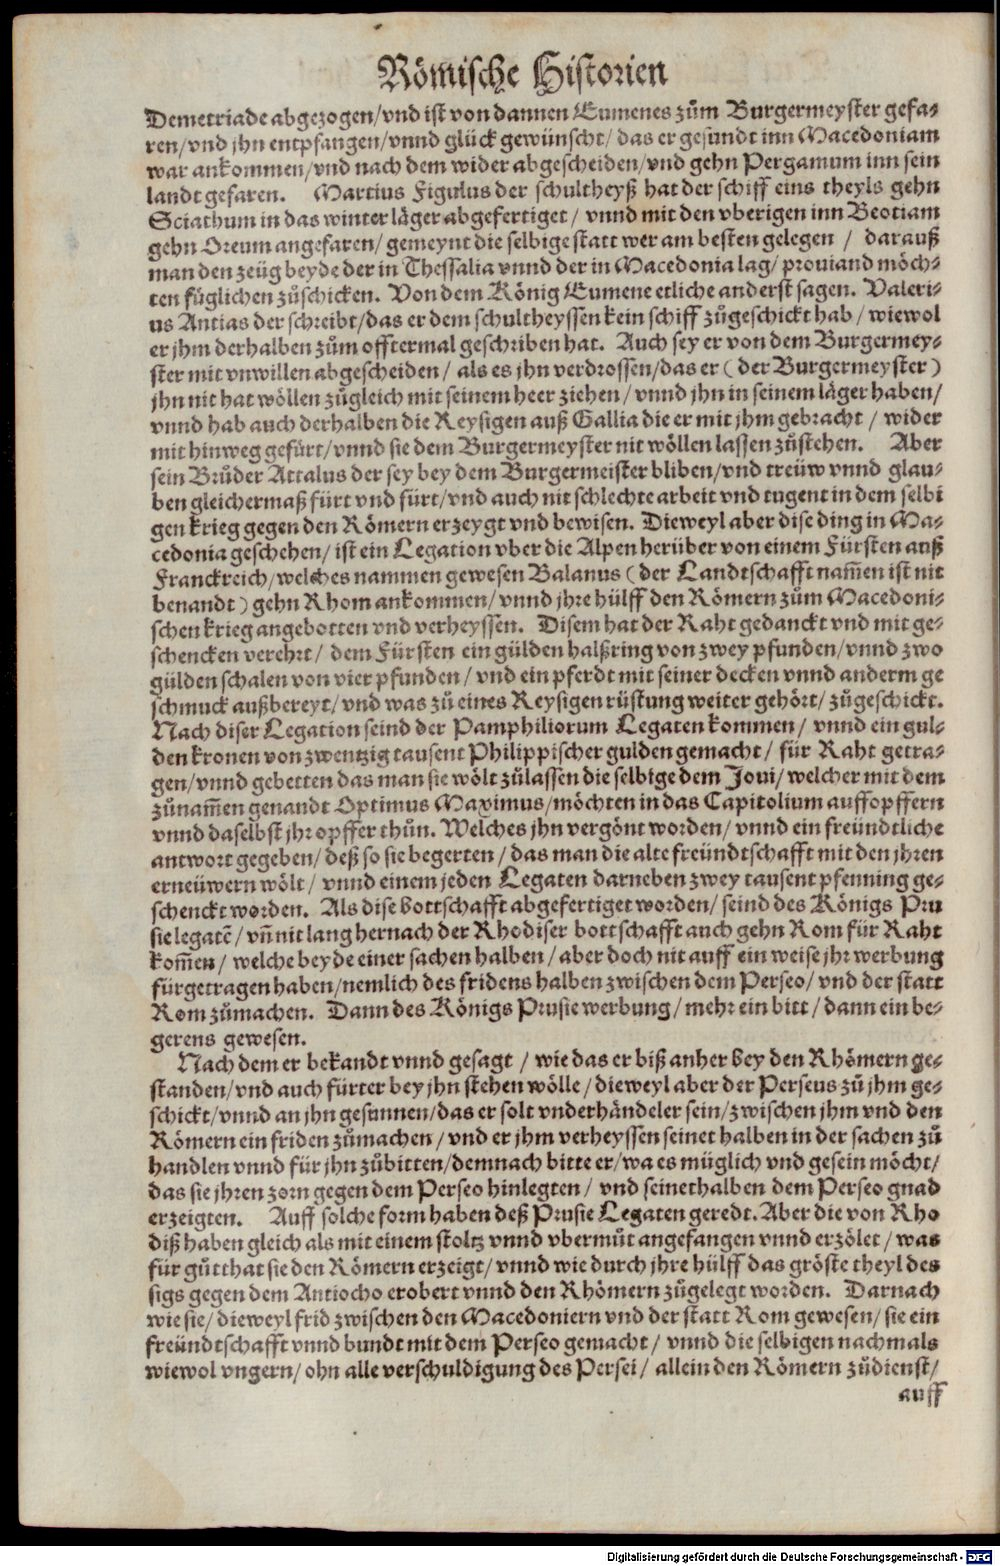 Römische Historien
Demetriade abgezogen/vnd ist von dannen Eumenes zům Burgermeyster gefa-
ren/vnd jhn entpfangen/vnnd glück gewünscht/das er gesundt inn Macedoniam
war ankommen/vnd nach dem wider abgescheiden/vnd gehn Pergamum inn sein
landt gefaren. Martius Figulus der schultheyß hat der schiff eins theyls gehn
Sciathum in das winter läger abgefertiget/ vnnd mit den vberigen inn Beotiam
gehn Oreum angefaren/ gemeynt die selbige statt wer am besten gelegen / darauß
man den zeüg beyde der in Thessalia vnnd der in Macedonia lag/ prouiand möch-
ten füglichen zůschicken. Von dem König Eumene etliche anderst sagen. Valeri-
us Antias der schreibt/das er dem schultheyssen kein schiff zůgeschickt hab/ wiewol
er jhm derhalben zům offtermal geschriben hat. Auch sey er von dem Burgermey-
ster mit vnwillen abgescheiden/ als es jhn verdrossen/das er ( der Burgermeyster )
jhn nit hat wöllen zůgleich mit seinem heer ziehen/ vnnd jhn in seinem läger haben/
vnnd hab auch derhalben die Reysigen auß Gallia die er mit jhm gebracht / wider
mit hinweg gefürt/vnnd sie dem Burgermeyster nit wöllen lassen zůstehen. Aber
sein Brůder Attalus der sey bey dem Burgermeister bliben/vnd treüw vnnd glau-
ben gleichermaß fürt vnd fürt/vnd auch nit schlechte arbeit vnd tugent in dem selbi
gen krieg gegen den Römern erzeygt vnd bewisen. Dieweyl aber dise ding in Ma-
cedonia geschehen/ ist ein Legation vber die Alpen herüber von einem Fürsten auß
Franckreich/welches nammen gewesen Balanus ( der Landtschafft nam̃en ist nit
benandt ) gehn Rhom ankommen/vnnd jhre hülff den Römern zům Macedoni-
schen krieg angebotten vnd verheyssen. Disem hat der Raht gedanckt vnd mit ge-
schencken verehrt/ dem Fürsten ein gülden halßring von zwey pfunden/vnnd zwo
gülden schalen von vier pfunden/ vnd ein pferdt mit seiner decken vnnd anderm ge
schmuck außbereyt/vnd was zů eines Reysigen rüstung weiter gehört/ zůgeschickt.
Nach diser Legation seind der Pamphiliorum Legaten kommen/ vnnd ein gul-
den kronen von zwentzig tausent Philippischer gulden gemacht/ für Raht getra-
gen/vnnd gebetten das man sie wölt zůlassen die selbige dem Joui/welcher mit dem
zůnam̃en genandt Optimus Maximus/möchten in das Capitolium auffopffern
vnnd daselbst jhr opffer thůn. Welches jhn vergönt worden/ vnnd ein freündtliche
antwort gegeben/ deß so sie begerten/ das man die alte freündtschafft mit den jhren
erneüwern wölt/ vnnd einem jeden Legaten darneben zwey tausent pfenning ge-
schenckt worden. Als dise bottschafft abgefertiget worden/ seind des Königs Pru
sie legatē/ vñ nit lang hernach der Rhodiser bottschafft auch gehn Rom für Raht
kom̃en/ welche beyde einer sachen halben/ aber doch nit auff ein weise jhr werbung
fürgetragen haben/nemlich des fridens halben zwischen dem Perseo/ vnd der statt
Rom zůmachen. Dann des Königs Prusie werbung/ mehr ein bitt/ dann ein be-
gerens gewesen.
Nach dem er bekandt vnnd gesagt / wie das er biß anher bey den Rhömern ge-
standen/vnd auch fürter bey jhn stehen wölle/ dieweyl aber der Perseus zů jhm ge-
schickt/vnnd an jhn gesunnen/das er solt vnderhändeler sein/zwischen jhm vnd den
Römern ein friden zůmachen/ vnd er jhm verheyssen seinet halben in der sachen zů
handlen vnnd für jhn zůbitten/demnach bitte er/wa es müglich vnd gesein möcht/
das sie jhren zorn gegen dem Perseo hinlegten/ vnd seinethalben dem Perseo gnad
erzeigten. Auff solche form haben deß Prusie Legaten geredt. Aber die von Rho
diß haben gleich als mit einem stoltz vnnd vbermůt angefangen vnnd erzölet/ was
für gůtthat sie den Römern erzeigt/ vnnd wie durch jhre hülff das gröste theyl des
sigs gegen dem Antiocho erobert vnnd den Rhömern zůgelegt worden. Darnach
wie sie/ dieweyl frid zwischen den Macedoniern vnd der statt Rom gewesen/ sie ein
freündtschafft vnnd bundt mit dem Perseo gemacht/ vnnd die selbigen nachmals
wiewol vngern/ ohn alle verschuldigung des Persei/ allein den Römern zůdienst/
auff
Digitalisierung gefördert durch die Deutsche Forschungsgemeinschaft - DFG